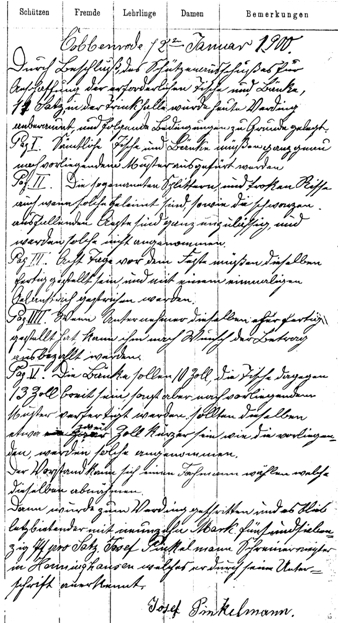 Schützen Fremde Lehrlinge Damen Bemerkungen
Cobbenrode, 12ten Januar 1900.
Durch Beschluß des Schützenausschußes für
Anschaffung der erforderlichen Tische und Bänke,
14 Satz in der Trinkhalle wurde heute Verding
anberaumt, und folgende Bedingungen zu Grunde gelegt.
Pos I. Sämtliche Tische und Bänke müßen ganz genau
nach vorliegendem Muster ausgeführt werden
Pos II. Die sogenannten Splittern und trocken Riße
auch wenn solche geleimt sind sowie die schwarzen
ausfallenden Aeste sind ganz unzulässig und
werden solche nicht angenommen.
Pos III. Acht Tage vor dem Feste müßen dieselben
fertig gestellt sein und mit einem einmaligen
Oelanstrich gestrichen werden.
Pos IIII. Wenn Unternehmer dieselben eher fertig
gestellt hat kann ihm nach Wunsch der Betrag
ausbezahlt werden.
Pos V. Die Bänke sollen 10 Zoll, die Tische dagegen
13 Zoll breit sein sonst aber nach vorliegendem
Muster verfertigt werden sollten dieselben
etwa zwei Zoll kürzer sein, wie die vorliegen-
den, werden solche angenommen.
Der Vorstand kann sich einen Fachmann wählen welche
dieselben abnehmen.
Dann wurde zum Verding geschritten und es blieb
letzbietender mit neunzehn Mark fünfundsieben-
zig Pf pro Satz Josef Pinkelmann Schreinermeister
in Henninghausen welches er durch seine Unter-
schrift anerkennt.
Josef Pinkelmann.